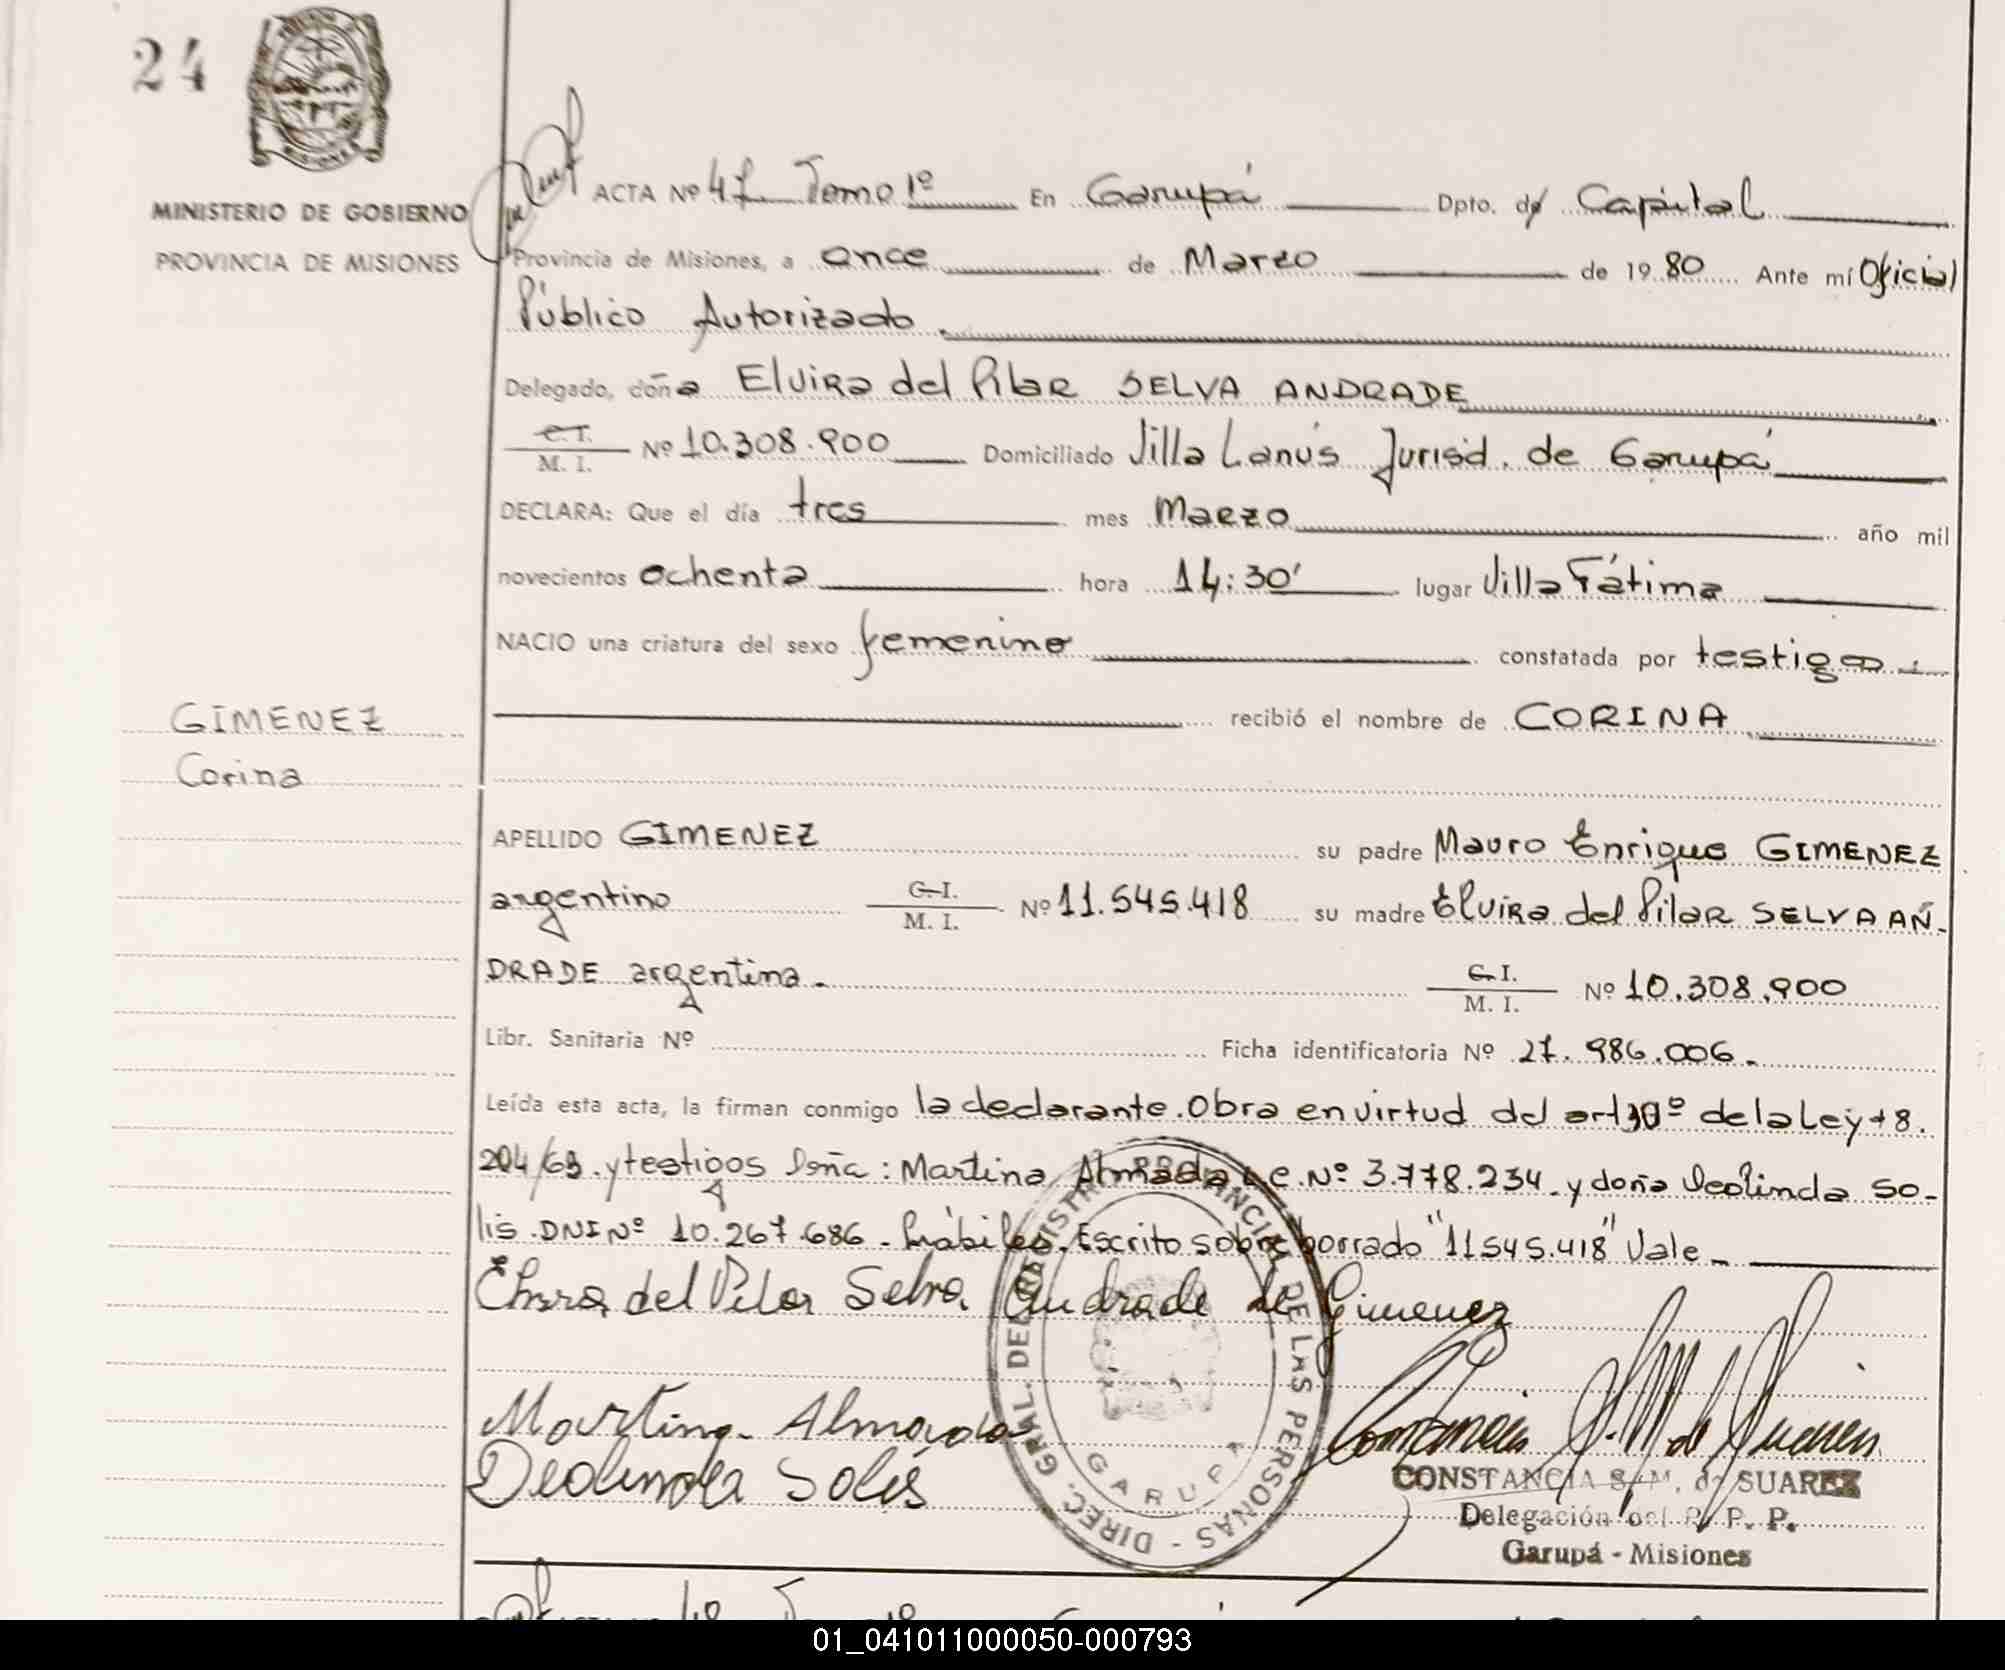 24
MISIONES
MINISTERIO DE GOBIERNO
PROVINCIA DE MISIONES
ACTA Nº 47 Tomo 1º En Garupá Dpto. de Capital
Provincia de Misiones, a once de Marzo de 1980 Ante mí Oficial
Público Autorizado.
Delegado, doña Elvira del Pilar SELVA ANDRADE
C.I. M. I. Nº 10.308.900 Domiciliado Villa Lanús Jurisd. de Garupá
DECLARA: Que el día tres mes Marzo año mil
novecientos ochenta hora 14:30' lugar Villa Fátima
NACIO una criatura del sexo femenino constatada por testigos.
GIMENEZ
recibió el nombre de CORINA
Corina
APELLIDO GIMENEZ su padre Mauro Enrique GIMENEZ
argentino C.I. M. I. Nº 11.545.418 su madre Elvira del Pilar SELVA AN-
DRADE argentina. C.I. M. I. Nº 10.308.900
Libr. Sanitaria Nº Ficha identificatoria Nº 27.986.006.
Leída esta acta, la firman conmigo la declarante. Obra en virtud del art 30º de la Ley 18.
204/69. y testigos Doña: Martina Almada L.E. Nº 3.778.234. y doña Deolinda So-
lis. DNI Nº 10.267.686 - hábiles. Escrito sobre borrado "11545.418" Vale
Elvira del Pilar Selva Andrade de Gimenez
Martina Almada
Deolinda Solis
DIREC. GRAL. DEL REGISTRO PROVINCIAL DE LAS PERSONAS - GARUPA
CONSTANCIA S. M. de SUAREZ
Delegación del R. P. P.
Garupá - Misiones
01_041011000050-000793